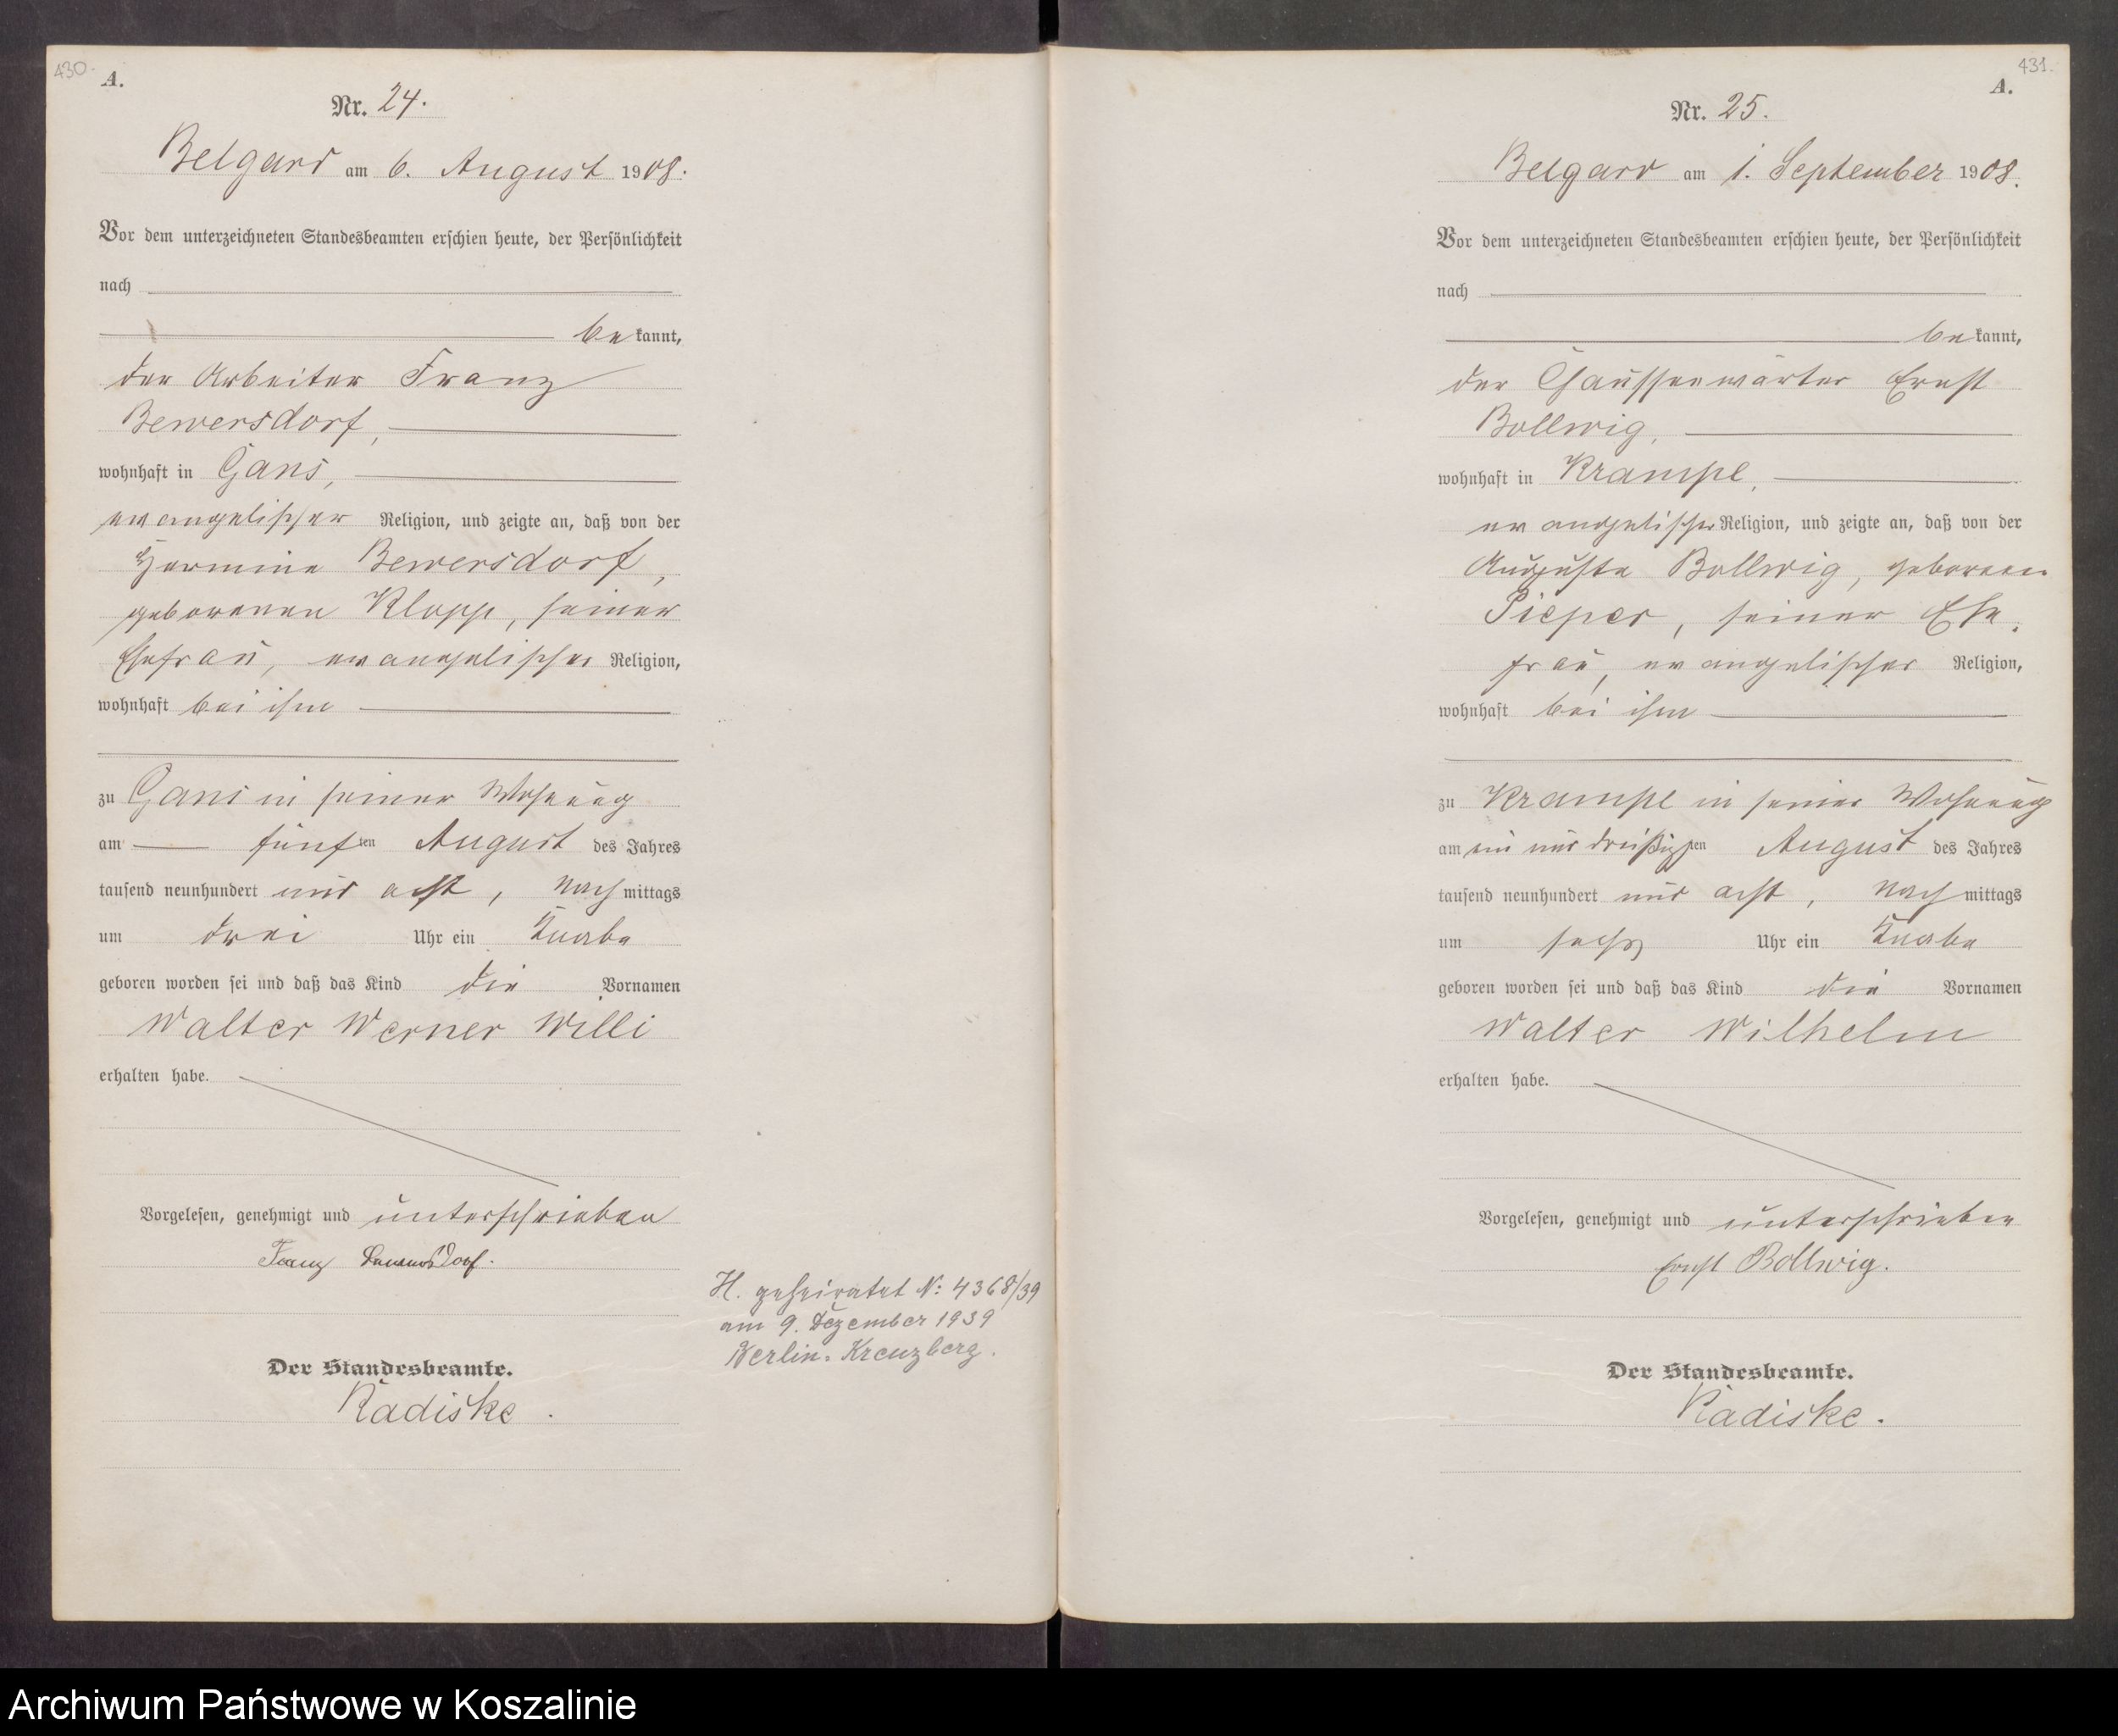 430.
A.
Nr. 24.
Belgard am 6. August 1908.
Vor dem unterzeichneten Standesbeamten erschien heute, der Persönlichkeit
nach
be kannt,
der Arbeiter Franz
Bewersdorf,
wohnhaft in Gans,
evangelischer Religion, und zeigte an, daß von der
Hermine Bewersdorf,
geborenen Klopp, seiner
Ehefrau, evangelischer Religion,
wohnhaft bei ihm
zu Gans in seiner Wohnung
am fünften August des Jahres
tausend neunhundert und acht, Nachmittags
um drei Uhr ein Knabe
geboren worden sei und daß das Kind die Vornamen
Walter Werner Willi
erhalten habe.
Vorgelesen, genehmigt und unterschrieben
Franz Bewersdorf.
Der Standesbeamte.
Radiske.
H. geheiratet N: 4368/39
am 9. Dezember 1939
Berlin-Kreuzberg.
431.
A.
Nr. 25.
Belgard am 1. September 1908.
Vor dem unterzeichneten Standesbeamten erschien heute, der Persönlichkeit
nach
be kannt,
der Chausseewärter Ernst
Bollwig,
wohnhaft in Krampe,
evangelischer Religion, und zeigte an, daß von der
Auguste Bollwig, geborenen
Pieper, seiner Ehe-
frau, evangelischer Religion,
wohnhaft bei ihm
zu Krampe in seiner Wohnung
am ein und dreißigsten August des Jahres
tausend neunhundert und acht, Nachmittags
um sechs Uhr ein Knabe
geboren worden sei und daß das Kind die Vornamen
Walter Wilhelm
erhalten habe.
Vorgelesen, genehmigt und unterschrieben
Ernst Bollwig.
Der Standesbeamte.
Radiske.
Archiwum Państwowe w Koszalinie